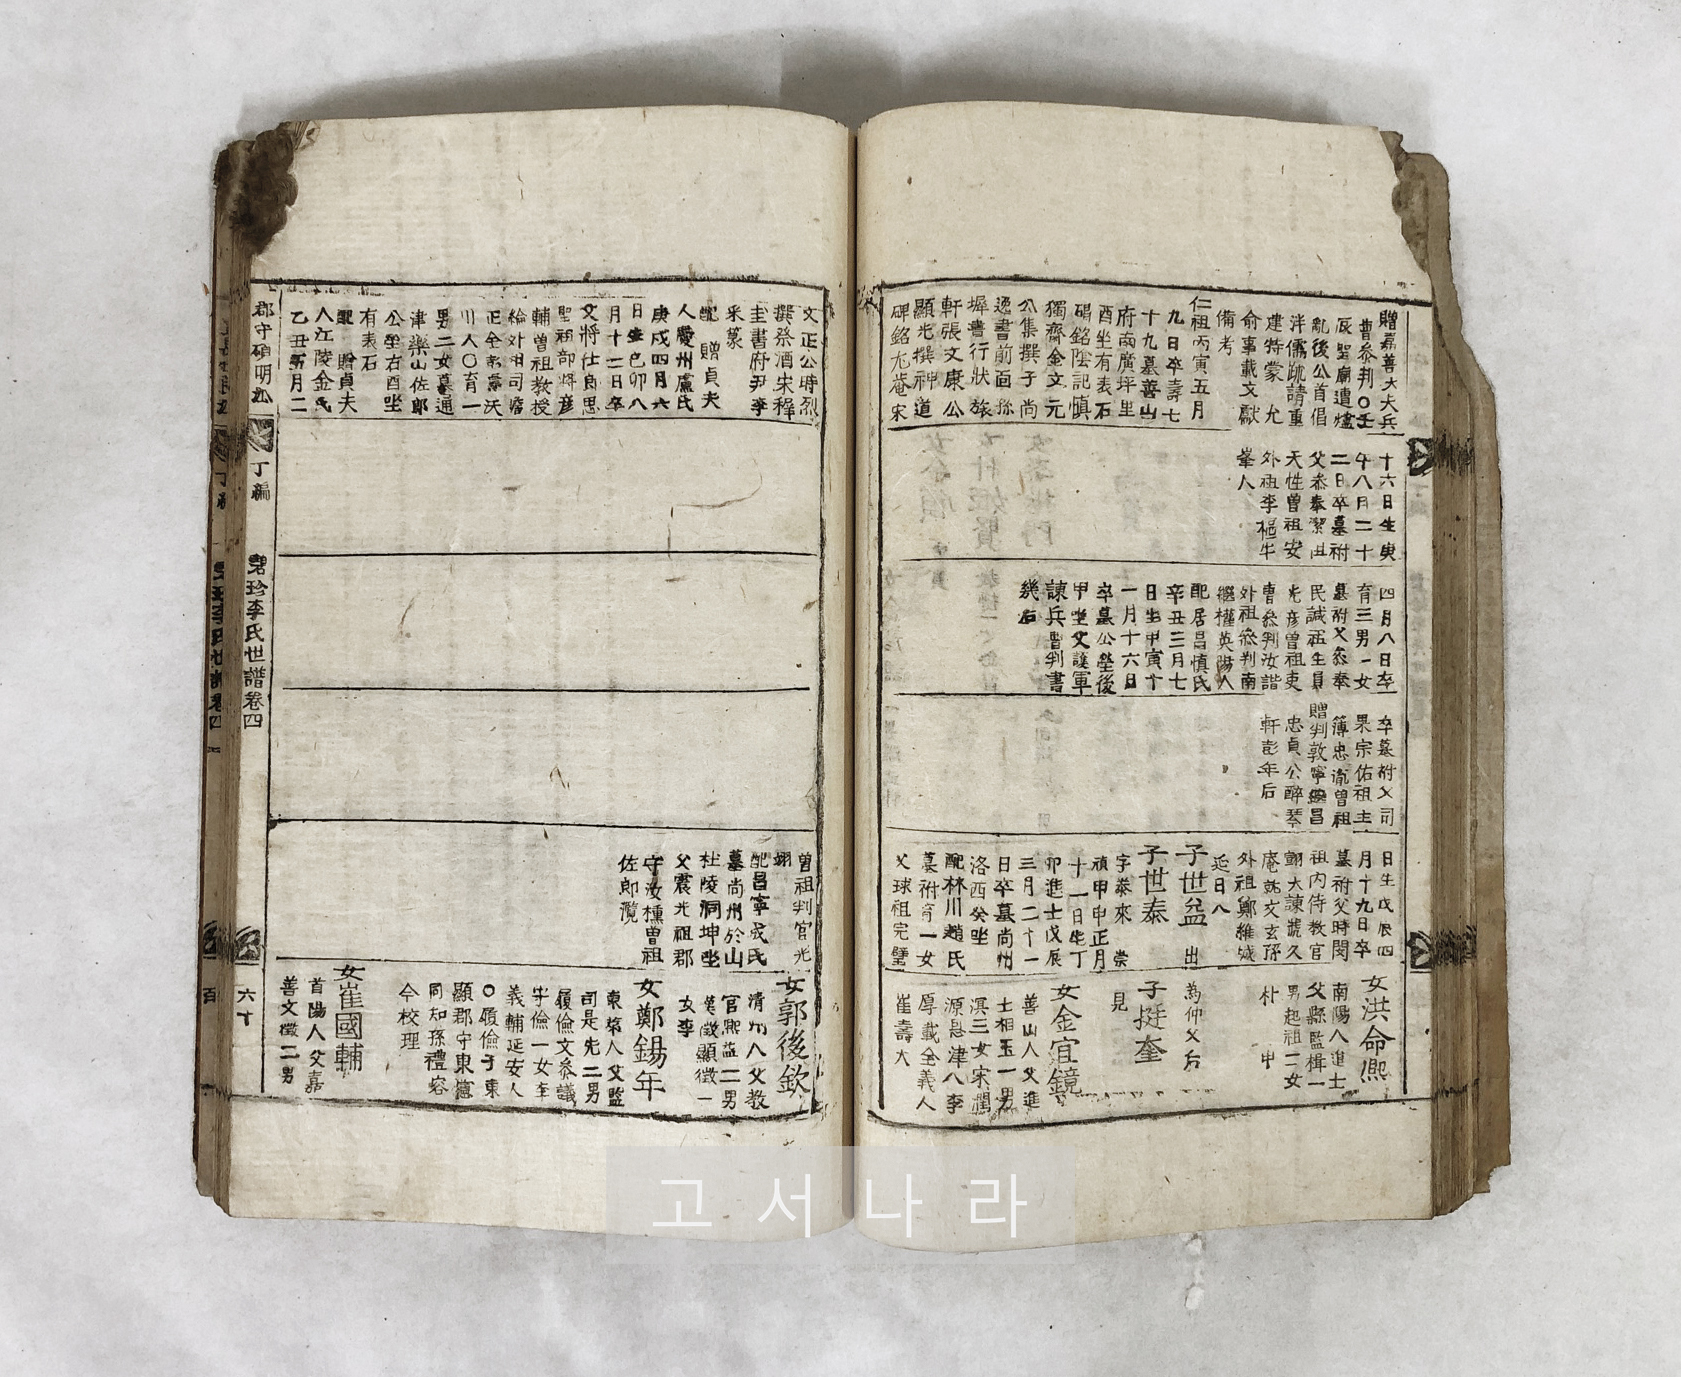 贈嘉善大夫兵
曹參判○壬
辰聖廟遺燼
亂後公首倡
泮儒疏請重
建特蒙 允
俞事載文獻
備考
仁祖丙寅五月
九日卒壽七
十九墓善山
府南廣坪里
酉坐有表石
碣銘陰記愼
獨齋金文元
公集撰子尚
逸書前面孫
墀書行狀旅
軒張文康公
顯光撰神道
碑銘尤菴宋
十六日生庚
午八月二十
二日卒墓祔
父參奉潔曲
天性曾祖安
外祖李樞牛
峯人
四月八日卒
育三男一女
墓祔父參奉
民誠祖生員
光彦曾祖吏
曹參判汝諧
外祖參判南
繼權英陽人
配居昌愼氏
辛丑三月七
日生甲寅十
一月十六日
卒墓公塋後
甲坐父護軍
諫兵曹判書
幾后
卒墓祔父司
果宗佑祖主
簿忠胤曾祖
贈判敦寧
忠貞公醉琴
軒彭年后
日生戊辰四
月十九日卒
墓祔父時閔
祖內侍教官
翻大諫號久
庵就文玄孫
外祖鄭維城
延日人
子世益 出
子世泰
字泰來 崇
禎甲申正月
十一日生丁
卯進士戊辰
三月二十一
日卒墓尚州
洛西癸坐
配林川趙氏
墓祔育一女
父球祖完璧
女洪命熙
南陽人進士
父縣監楫一
男起祖二女
朴 申
為仲父后
子挺奎
見
女金宜鏡
善山人父進
士相玉一男
淇三女宋潤
源恩津人李
厚載全義人
崔壽大
文正公時烈
撰祭酒宋稺
圭書府尹李
采篆
配 贈貞夫
人慶州盧氏
庚戌四月六
日生己卯八
月十二日卒
父將仕郎思
聖祖部將彦
輔曾祖教授
綸外祖司
正全 沃
川人○育一
男二女墓通
津藥山佐郎
公塋右酉坐
有表石
配 贈貞夫
人江陵金氏
乙丑 月二
曾祖判官光
翊
配昌寧成氏
墓尚州於山
杜陵洞坤坐
父震光祖郡
守汝櫄曾祖
佐郎灠
女郭後欽
清州人父教
官熙益二男
英徵顯徵一
女李
女鄭錫年
東萊人父監
司是先二男
履儉文參議
字儉一女李
義輔延安人
○履儉子東
顯郡守東憲
同知孫禮容
今校理
女崔國輔
首陽人父嘉
善文徵二男
郡守碩明派
丁編
珍李氏世譜卷四
六十
고서나라